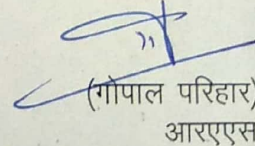 (गोपाल परिहार)
आरएएस